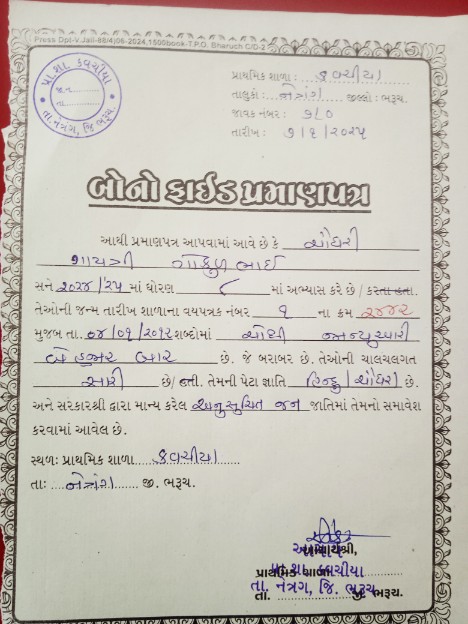 Press Dpt-V.Jail-88(4)06-2024,1500book-T.P.O. Bharuch C/D-2
પ્રા.શા. કવચીયા
જા.નં.
તા.
તા. નેત્રંગ, જિ ભરૂચ.
પ્રાથમિક શાળા : કવચીયા
તાલુકો : નેત્રંગ જીલ્લો : ભરૂચ.
જાવક નંબર : ૭/૦
તારીખ : ૭/૧/૨૦૨૫
બોનો ફાઈડ પ્રમાણપત્ર
આથી પ્રમાણપત્ર આપવામાં આવે છે કે ચૌધરી
ગાયત્રી ગોકુળભાઈ
સને ૨૦૨૪/૨૫ માં ધોરણ ૮ માં અભ્યાસ કરે છે / કરતા હતા.
તેઓની જન્મ તારીખ શાળાના વયપત્રક નંબર ૧ ના ક્રમ ૨૪૪૨
મુજબ તા. ૦૪/૦૧/૨૦૧૨ શબ્દોમાં ચોથી જાન્યુઆરી
બે હજાર બાર છે. જે બરાબર છે. તેઓની ચાલચલગત
સારી છે/ હતી. તેમની પેટા જ્ઞાતિ હિન્દુ/ચૌધરી છે.
અને સરકારશ્રી દ્વારા માન્ય કરેલ અનુસુચિત જન જાતિમાં તેમનો સમાવેશ
કરવામાં આવેલ છે.
સ્થળ: પ્રાથમિક શાળા કવચીયા
તા: નેત્રંગ જી. ભરૂચ.
આચાર્યશ્રી,
પ્રાથમિક શાળા
પ્રા.શા. કવચીયા
તા. જી. ભરૂચ.
તા. નેત્રંગ, જિ. ભરૂચ